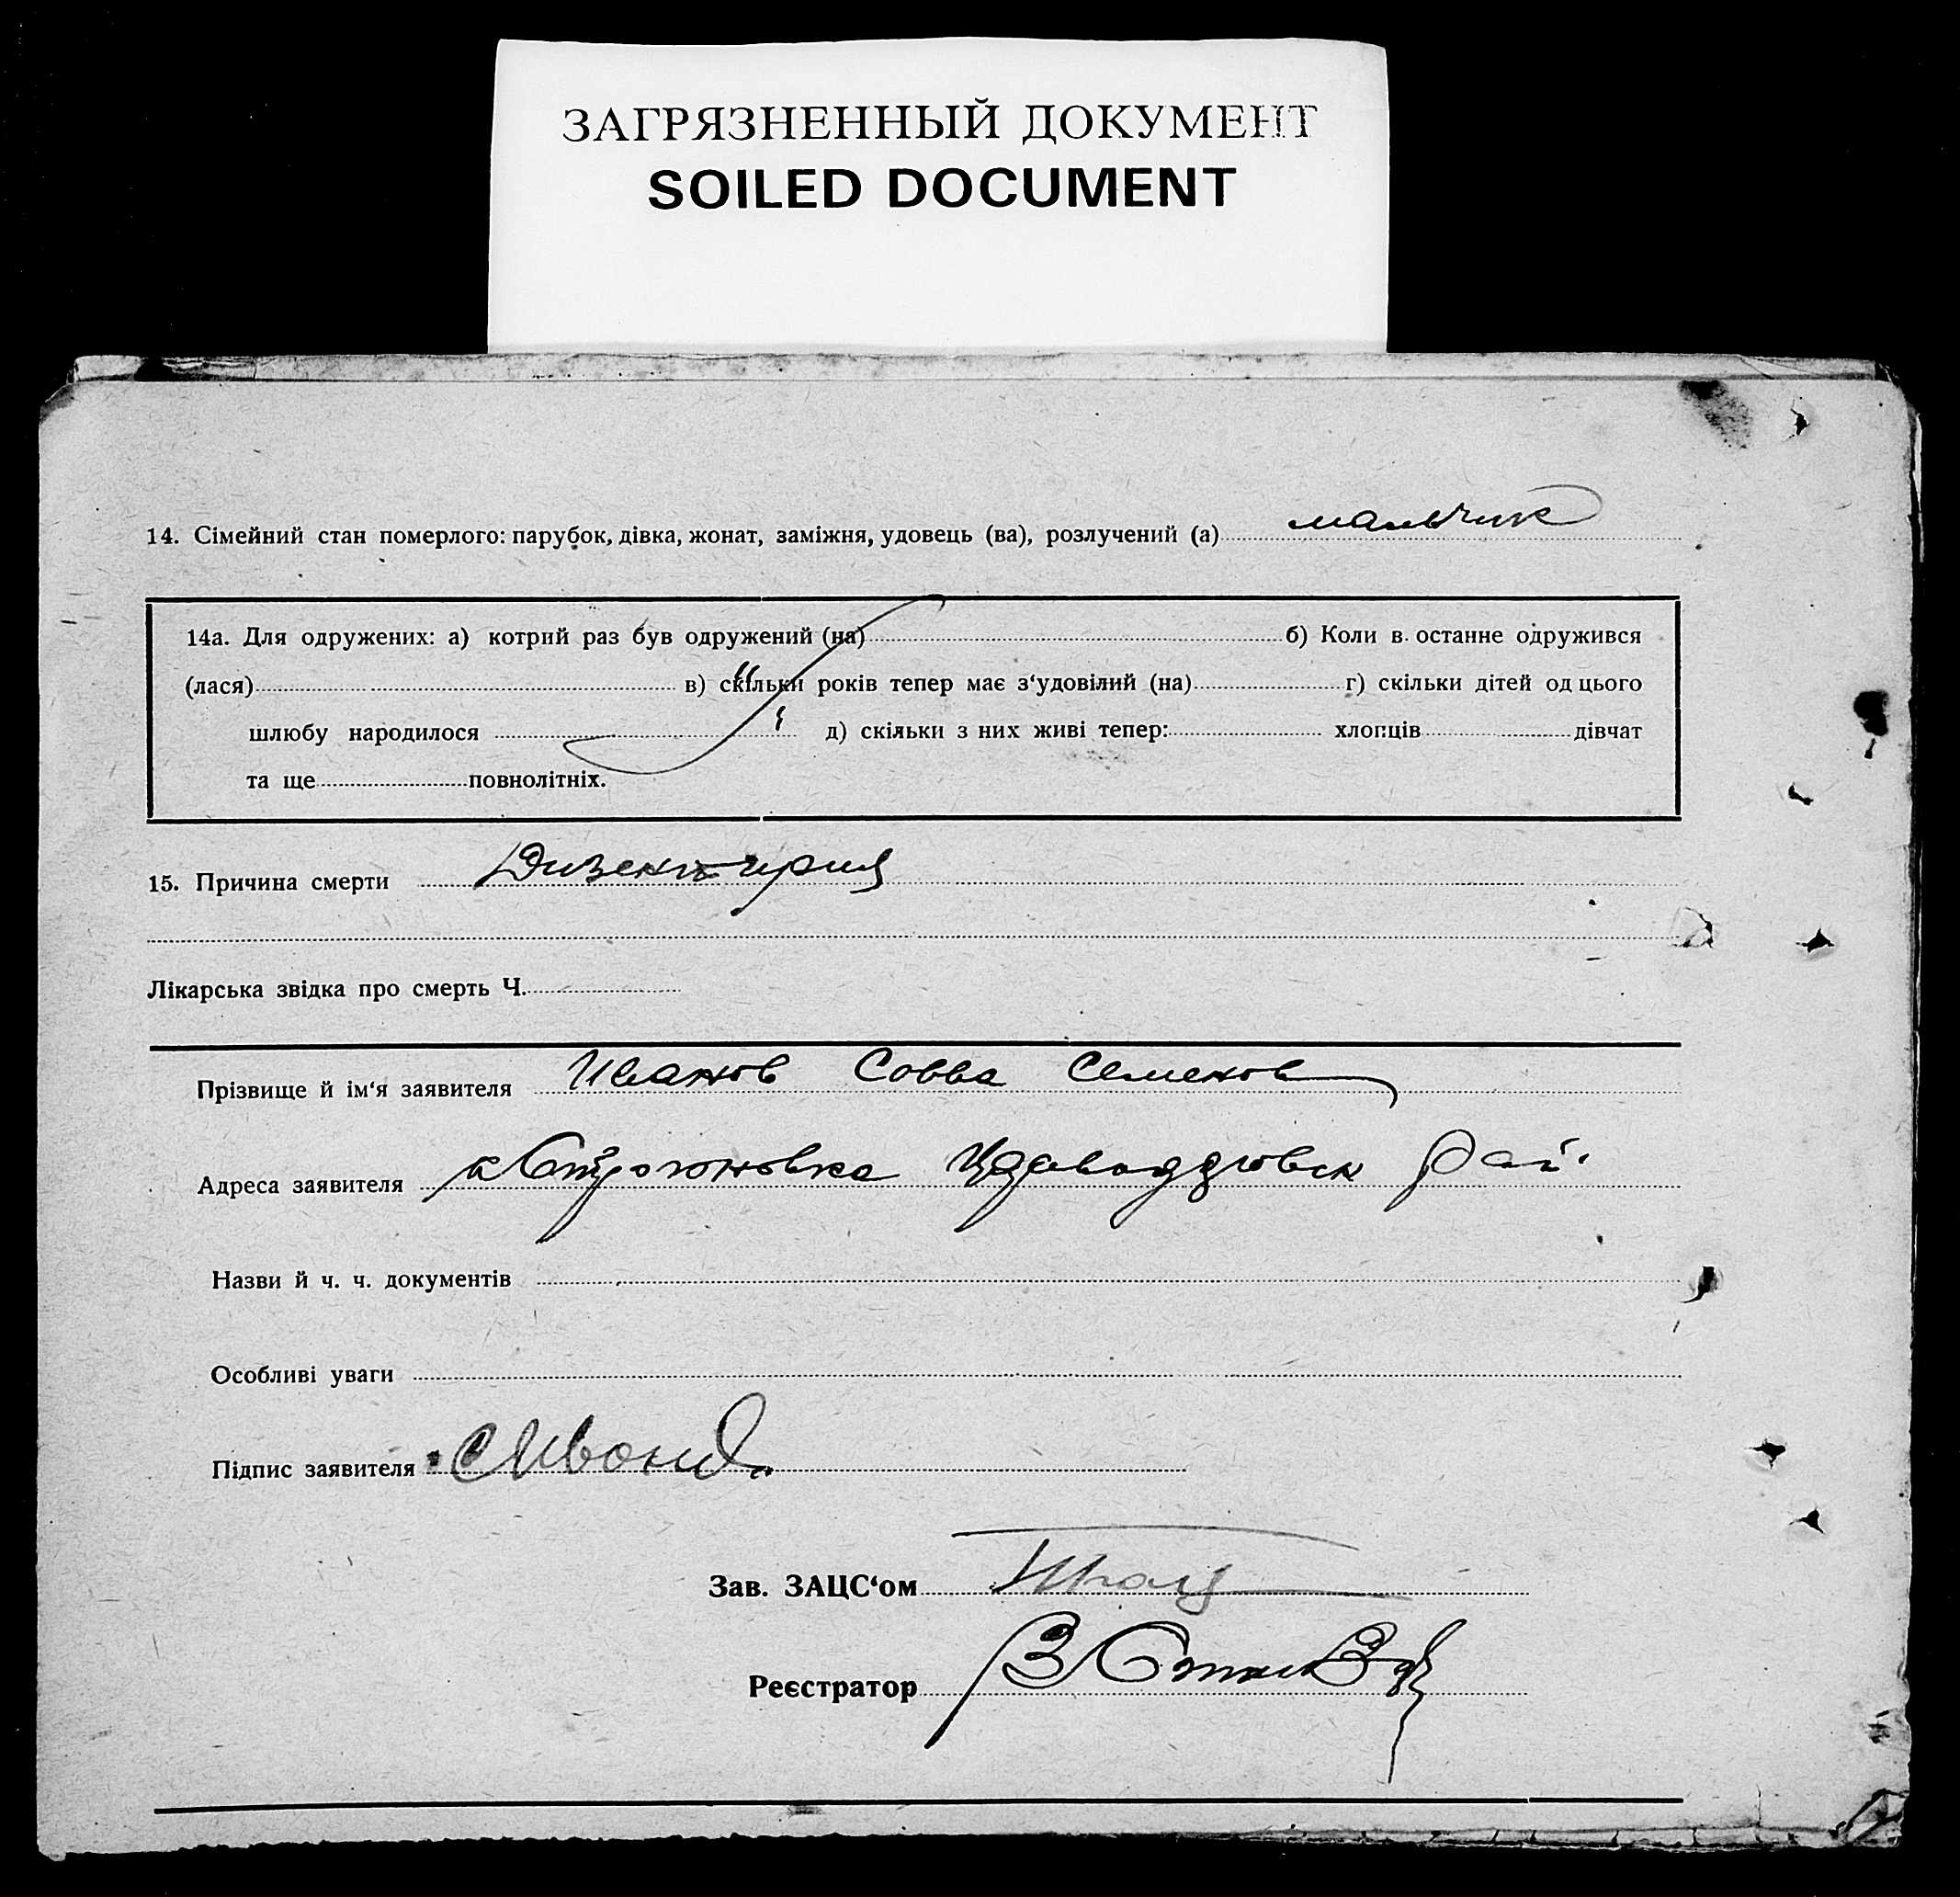 ЗАГРЯЗНЕННЫЙ ДОКУМЕНТ
SOILED DOCUMENT
14. Сімейний стан померлого: парубок, дівка, жонат, заміжня, удовець (ва), розлучений (а) мальчик
14а. Для одружених: а) котрий раз був одружений (на) б) Коли в останне одружився
(лася) в) скільки років тепер має з‘удовілий (на) г) скільки дітей од цього
шлюбу народилося д) скільки з них живі тепер: хлопців дівчат
та ще повнолітніх.
15. Причина смерти Дизентирия
Лікарська звідка про смерть Ч.
Прізвище й ім‘я заявителя Иванов Савва Семенов
Адреса заявителя рай.
Назви й ч. ч. документів
Особливі уваги
Підпис заявителя
Зав. ЗАЦС‘ом
Реєстратор